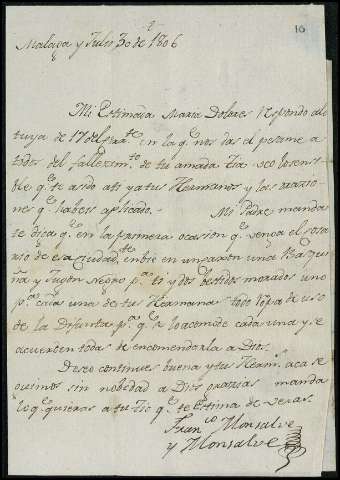 10
Malaga y Julio 30 de 1806
Mi Estimada Maria Dolores Respondo a la
tuya de 17 del en la q.e nos das el pesame a
todos del fallezim.to de tu amada tia
ble q.e te asido ati ya tus Hermanos y las orazio-
nes q.e habeis aplicado. Mi Padre manda
te diga q.e en la primera ocasion q.e venga el
rio de esa Ciudad, embie en un una Basqui-
ña y Jugon Negro p.a ti y dos bestidos morados uno
p.a cada una de tus Hermanas todo ropa de uso
de la Difunta p.a q.e lo acomode cada una y se
acuerden todas de encomendarla a Dios.
Deseo continues buena y tus Herm.s aca se-
guimos sin nobedad a Dios grazias manda
lo q.e quieras a tu tio q.e te Estima de veras
Fran.co Monsalve
y Monsalve